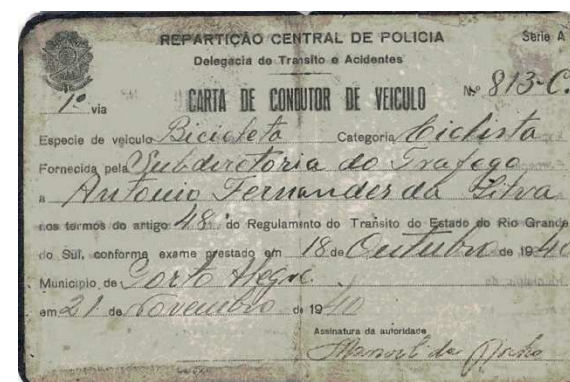 REPARTIÇÃO CENTRAL DE POLICIA Serie A
Delegacia de Transito e Acidentes
1ª via CARTA DE CONDUTOR DE VEICULO Nº 813-C.
Especie de veiculo Bicicleta Categoria Ciclista
Fornecida pela Subdiretoria do Trafego
a Antonio Fernandes da Silva
nos termos do artigo 48 do Regulamento do Trañsito do Estado do Rio Grande
do Sul, conforme exame prestado em 18 de Outubro de 1940
Municipio de Porto Alegre
em 21 de Novembro de 1940
Assinatura da autoridade
Manoel da